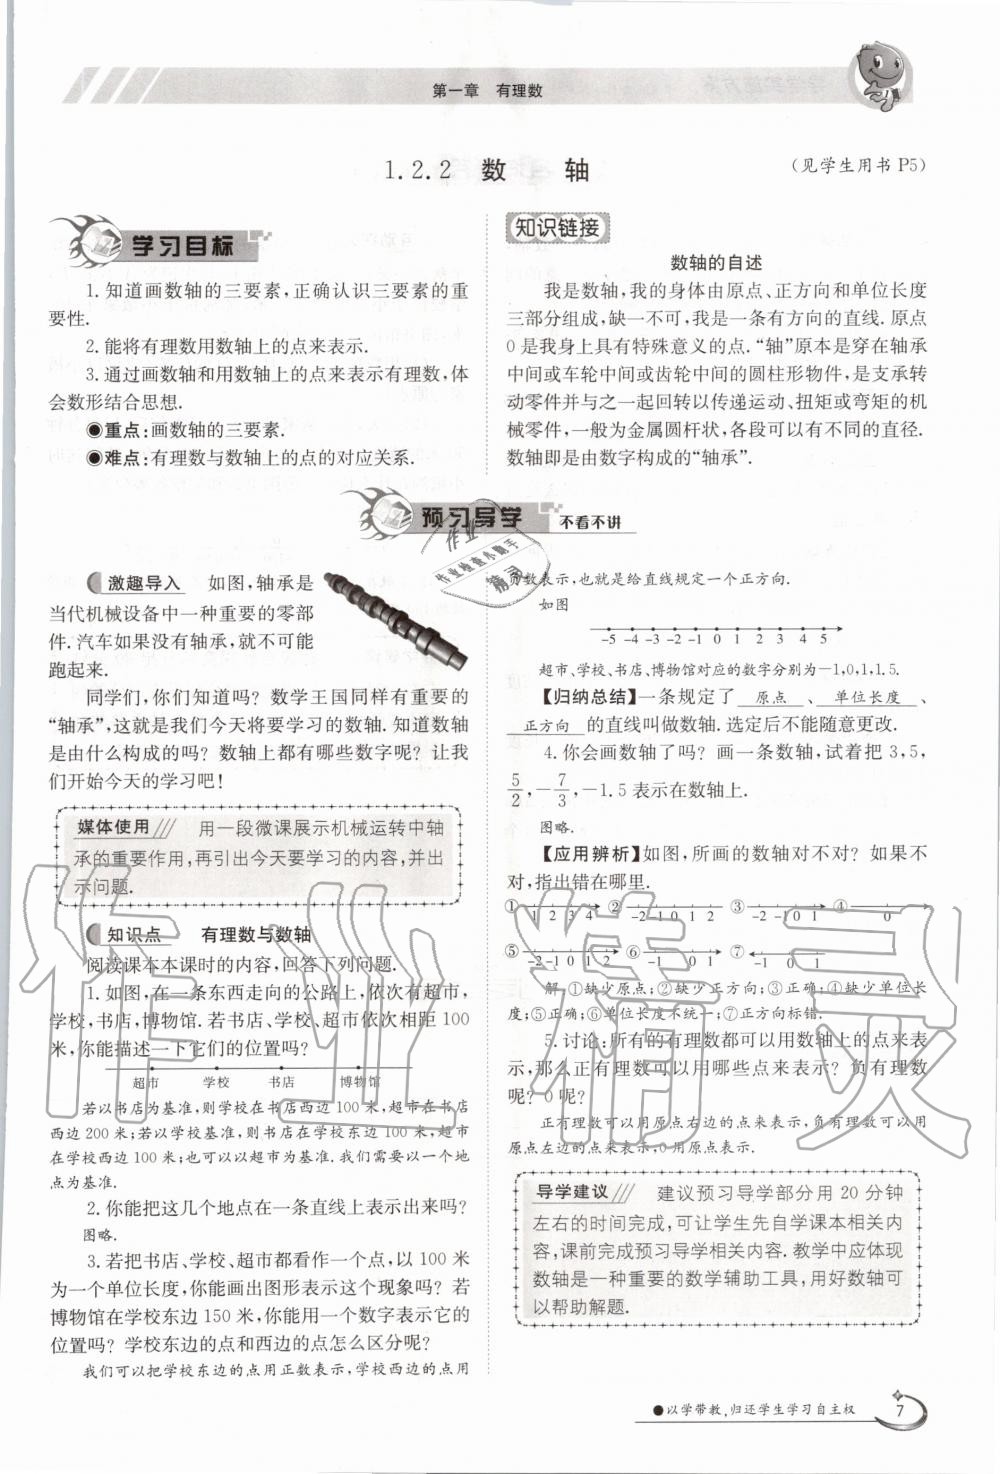 第一章 有理数
1.2.2 数 轴
(见学生用书 P5)
学习目标
1. 知道画数轴的三要素,正确认识三要素的重
要性.
2. 能将有理数用数轴上的点来表示.
3. 通过画数轴和用数轴上的点来表示有理数,体
会数形结合思想.
◉重点:画数轴的三要素.
◉难点:有理数与数轴上的点的对应关系.
知识链接
数轴的自述
我是数轴,我的身体由原点、正方向和单位长度
三部分组成,缺一不可,我是一条有方向的直线. 原点
0 是我身上具有特殊意义的点.“轴”原本是穿在轴承
中间或车轮中间或齿轮中间的圆柱形物件,是支承转
动零件并与之一起回转以传递运动、扭矩或弯矩的机
械零件,一般为金属圆杆状,各段可以有不同的直径.
数轴即是由数字构成的“轴承”.
预习导学 不看不讲
激趣导入 如图,轴承是
当代机械设备中一种重要的零部
件. 汽车如果没有轴承,就不可能
跑起来.
同学们,你们知道吗? 数学王国同样有重要的
“轴承”,这就是我们今天将要学习的数轴. 知道数轴
是由什么构成的吗? 数轴上都有哪些数字呢? 让我
们开始今天的学习吧!
媒体使用 用一段微课展示机械运转中轴
承的重要作用,再引出今天要学习的内容,并出
示问题.
知识点 有理数与数轴
阅读课本本课时的内容,回答下列问题.
1. 如图,在一条东西走向的公路上,依次有超市,
学校,书店,博物馆. 若书店、学校、超市依次相距 100
米,你能描述一下它们的位置吗?
超市 学校 书店 博物馆
若以书店为基准,则学校在书店西边 100 米,超市在书店
西边 200 米;若以学校基准,则书店在学校东边 100 米,超市
在学校西边 100 米;也可以以超市为基准. 我们需要以一个地
点为基准.
2. 你能把这几个地点在一条直线上表示出来吗?
图略.
3. 若把书店、学校、超市都看作一个点,以 100 米
为一个单位长度,你能画出图形表示这个现象吗? 若
博物馆在学校东边 150 米,你能用一个数字表示它的
位置吗? 学校东边的点和西边的点怎么区分呢?
我们可以把学校东边的点用正数表示,学校西边的点用
负数表示,也就是给直线规定一个正方向.
如图
-5 -4 -3 -2 -1 0 1 2 3 4 5
超市、学校、书店、博物馆对应的数字分别为-1,0,1,1.5.
【归纳总结】一条规定了 原点 、 单位长度 、
正方向 的直线叫做数轴. 选定后不能随意更改.
4. 你会画数轴了吗? 画一条数轴,试着把 3,5,
5/2,-7/3,-1.5 表示在数轴上.
图略.
【应用辨析】如图,所画的数轴对不对? 如果不
对,指出错在哪里.
① 1 2 3 4 ② -2 -1 0 1 2 ③ -2 -1 0 1 ④ 0
⑤ -2 -1 0 1 2 ⑥ -1 0 1 ⑦ -1 0 1
解:①缺少原点;②缺少正方向;③正确;④缺少单位长
度;⑤正确;⑥单位长度不统一;⑦正方向标错.
5. 讨论:所有的有理数都可以用数轴上的点来表
示,那么正有理数可以用哪些点来表示? 负有理数
呢? 0 呢?
正有理数可以用原点右边的点来表示,负有理数可以用
原点左边的点来表示,0 用原点表示.
导学建议 建议预习导学部分用 20 分钟
左右的时间完成,可让学生先自学课本相关内
容,课前完成预习导学相关内容. 教学中应体现
数轴是一种重要的数学辅助工具,用好数轴可
以帮助解题.
●以学带教,归还学生学习自主权 7
作业
作业检查小助手
精灵
作业精灵